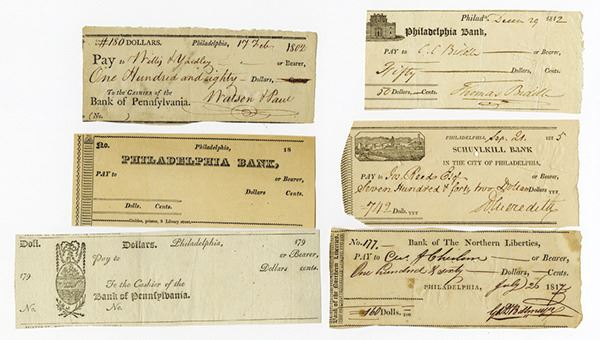 #180 DOLLARS. Philadelphia, 17 Feb. 1802
PAY to Willis & Yardley or Bearer,
One Hundred and eighty Dollars,
To the CASHIER of the
Bank of Pennsylvania. Watson & Paul
(No. )
No. Philadelphia, 18
PHILADELPHIA BANK,
PAY to or Bearer,
Dollars Cents.
Dolls. Cents.
printer, 6 Library street.
Doll. Dollars. Philadelphia, 179
179 Pay to or Bearer,
Dollars cents.
To the Cashier of the
No. No. Bank of Pennsylvania.
Philadª. Decem 29 1812
Philadelphia Bank,
PAY to C. C. Biddle or Bearer,
Fifty Dollars, Cents.
50 Dollars Cents. Thomas Biddle
PHILADELPHIA, Sep. 20. 1815
SCHUYLKILL BANK
IN THE CITY OF PHILADELPHIA,
PAY to Jos. Reed Esq. or Bearer,
Seven Hundred & forty two Dollars
742 Dolls. D Meredith
No. 177. Bank of The Northern Liberties,
PAY to or Bearer,
One hundred & sixty Dollars, Cents.
PHILADELPHIA, July 26 1817
160 Dolls.
Bank of the Northern Liberties